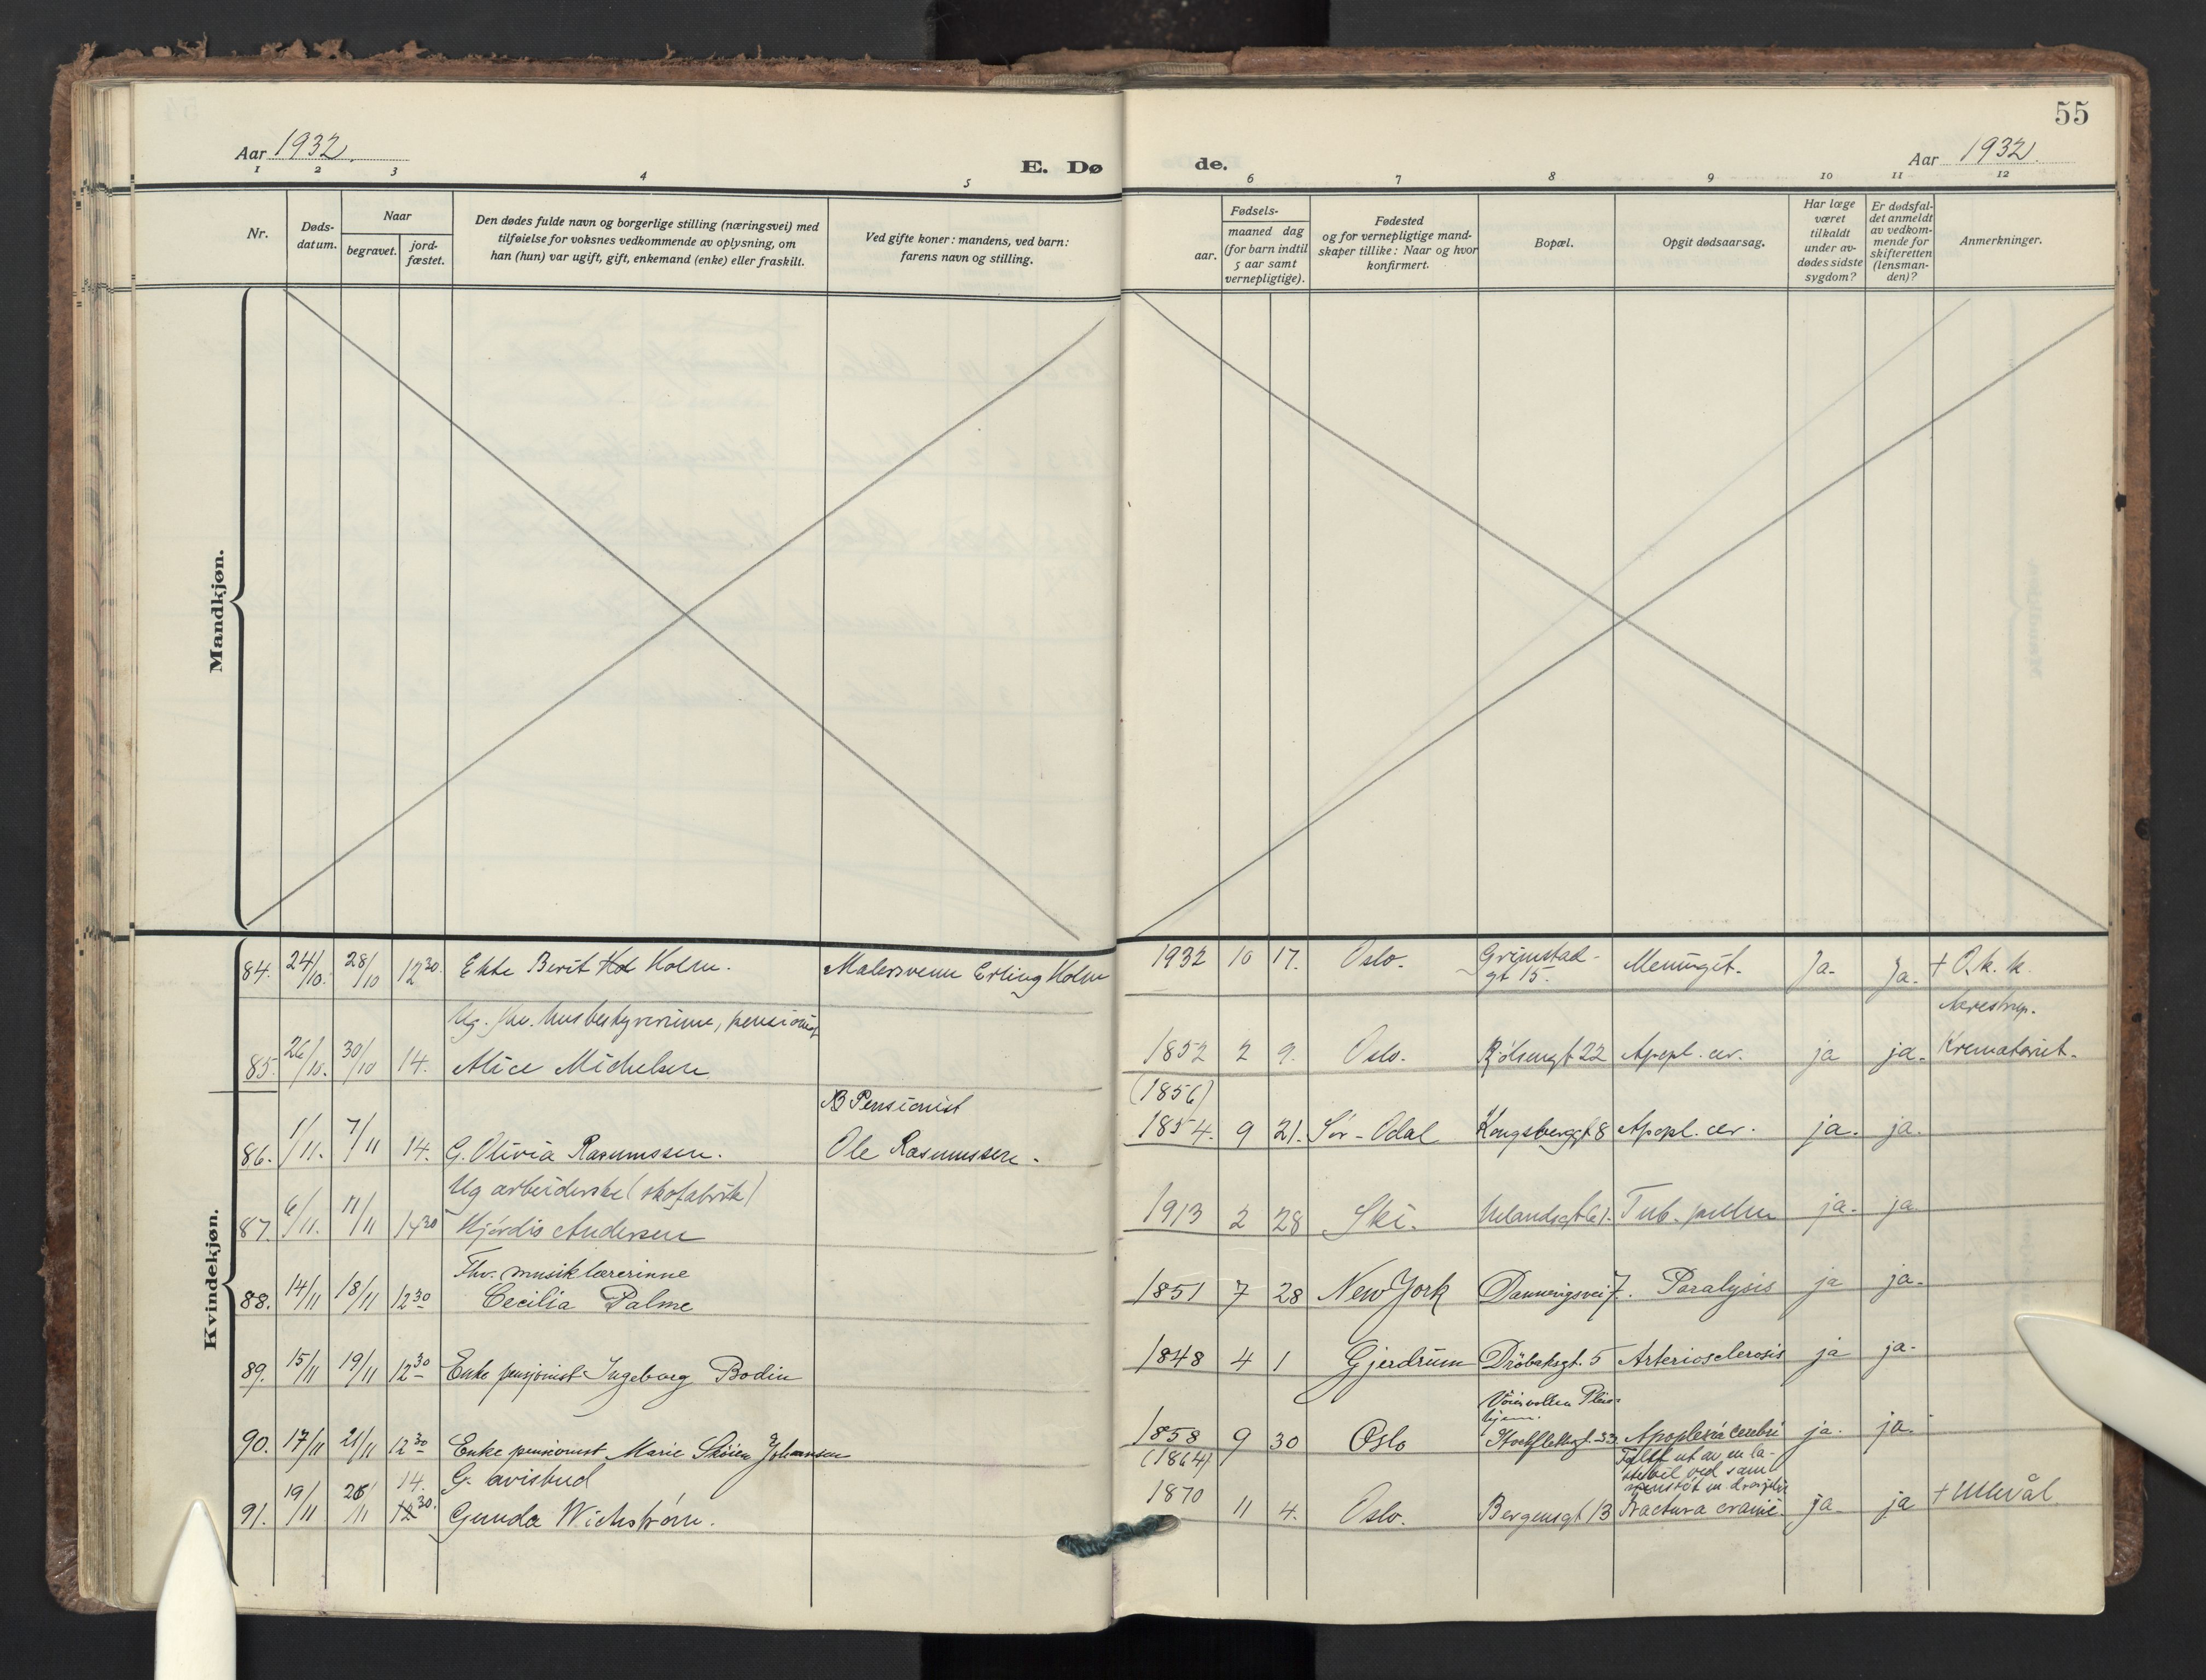 55
Aar 1932.
E. Dø
de.
Aar 1932.
1 2 3 4 5 6 7 8 9 10 11 12
Nr.
Døds-
datum.
Naar
begravet.
jord-
fæstet.
Den dødes fulde navn og borgerlige stilling (næringsvei) med
tilføielse for voksnes vedkommende av oplysning, om
han (hun) var ugift, gift, enkemand (enke) eller fraskilt.
Ved gifte koner: mandens, ved barn:
farens navn og stilling.
aar.
Fødsels-
maaned dag
(for barn indtil
5 aar samt
vernepligtige).
Fødested
og for vernepligtige mand-
skaper tillike: Naar og hvor
konfirmert.
Bopæl.
Opgit dødsaarsag.
Har læge
været
tilkaldt
under av-
dødes sidste
sygdom?
Er dødsfal-
det anmeldt
av vedkom-
mende for
skifteretten
(lensman-
den)?
Anmerkninger.
Mandkjøn.
Kvindekjøn.
84. 24/10. 28/10 12 30. Ekte Berit Holm. Malersvenn Erling Holm 1932 10 17. Oslo. Grimstad-
gt 15. Meningit. Ja. Ja. + O. k. k.
Ug. fhv. husbestyrerinne, pensionist
85. 26/10. 30/10 14. Alice Michelsen 1852 2 9. Oslo. gt 22 Apopl. cer. ja ja. Krematoriet.
Pensionist
(1856)
86. 1/11. 7/11 14. G. Olivia Rasmussen. Ole Rasmussen. 1854. 9 21. Sør-Odal Kongsberggt 8 Apopl. cer. ja. ja.
Ug arbeiderske (skofabrik)
87. 6/11. 11/11 14 30 Hjørdis Andersen 1913 2 28 Ski. Uelandsgt 61. Tub. pulm ja. ja
Fhv. musiklærerinne
88. 14/11 18/11 12 30 Cecilia Palme 1851 7 28 New York Dannevigsvei 7. Paralysis ja ja.
89. 15/11 19/11 12 30 Enke pensjonist Ingeborg Bodin 1848 4 1 Gjerdrum Drøbaksgt. 5 Arteriosclerosis ja ja.
hjem.
90. 17/11 21/11 12 30 Enke pensionist Marie Skøien Johansen 1858 9 30 Oslo 33 Apoplexia cerebri ja. ja.
(1864)
Falt ut av en la-
stebil ved sam-
14. G. avisbud
91. 19/11 26/11 12 30. Gunda Wichstrøm. 1870 11 4. Oslo. Bergensgt 13 Fractura cranii. ja ja + Ullevål